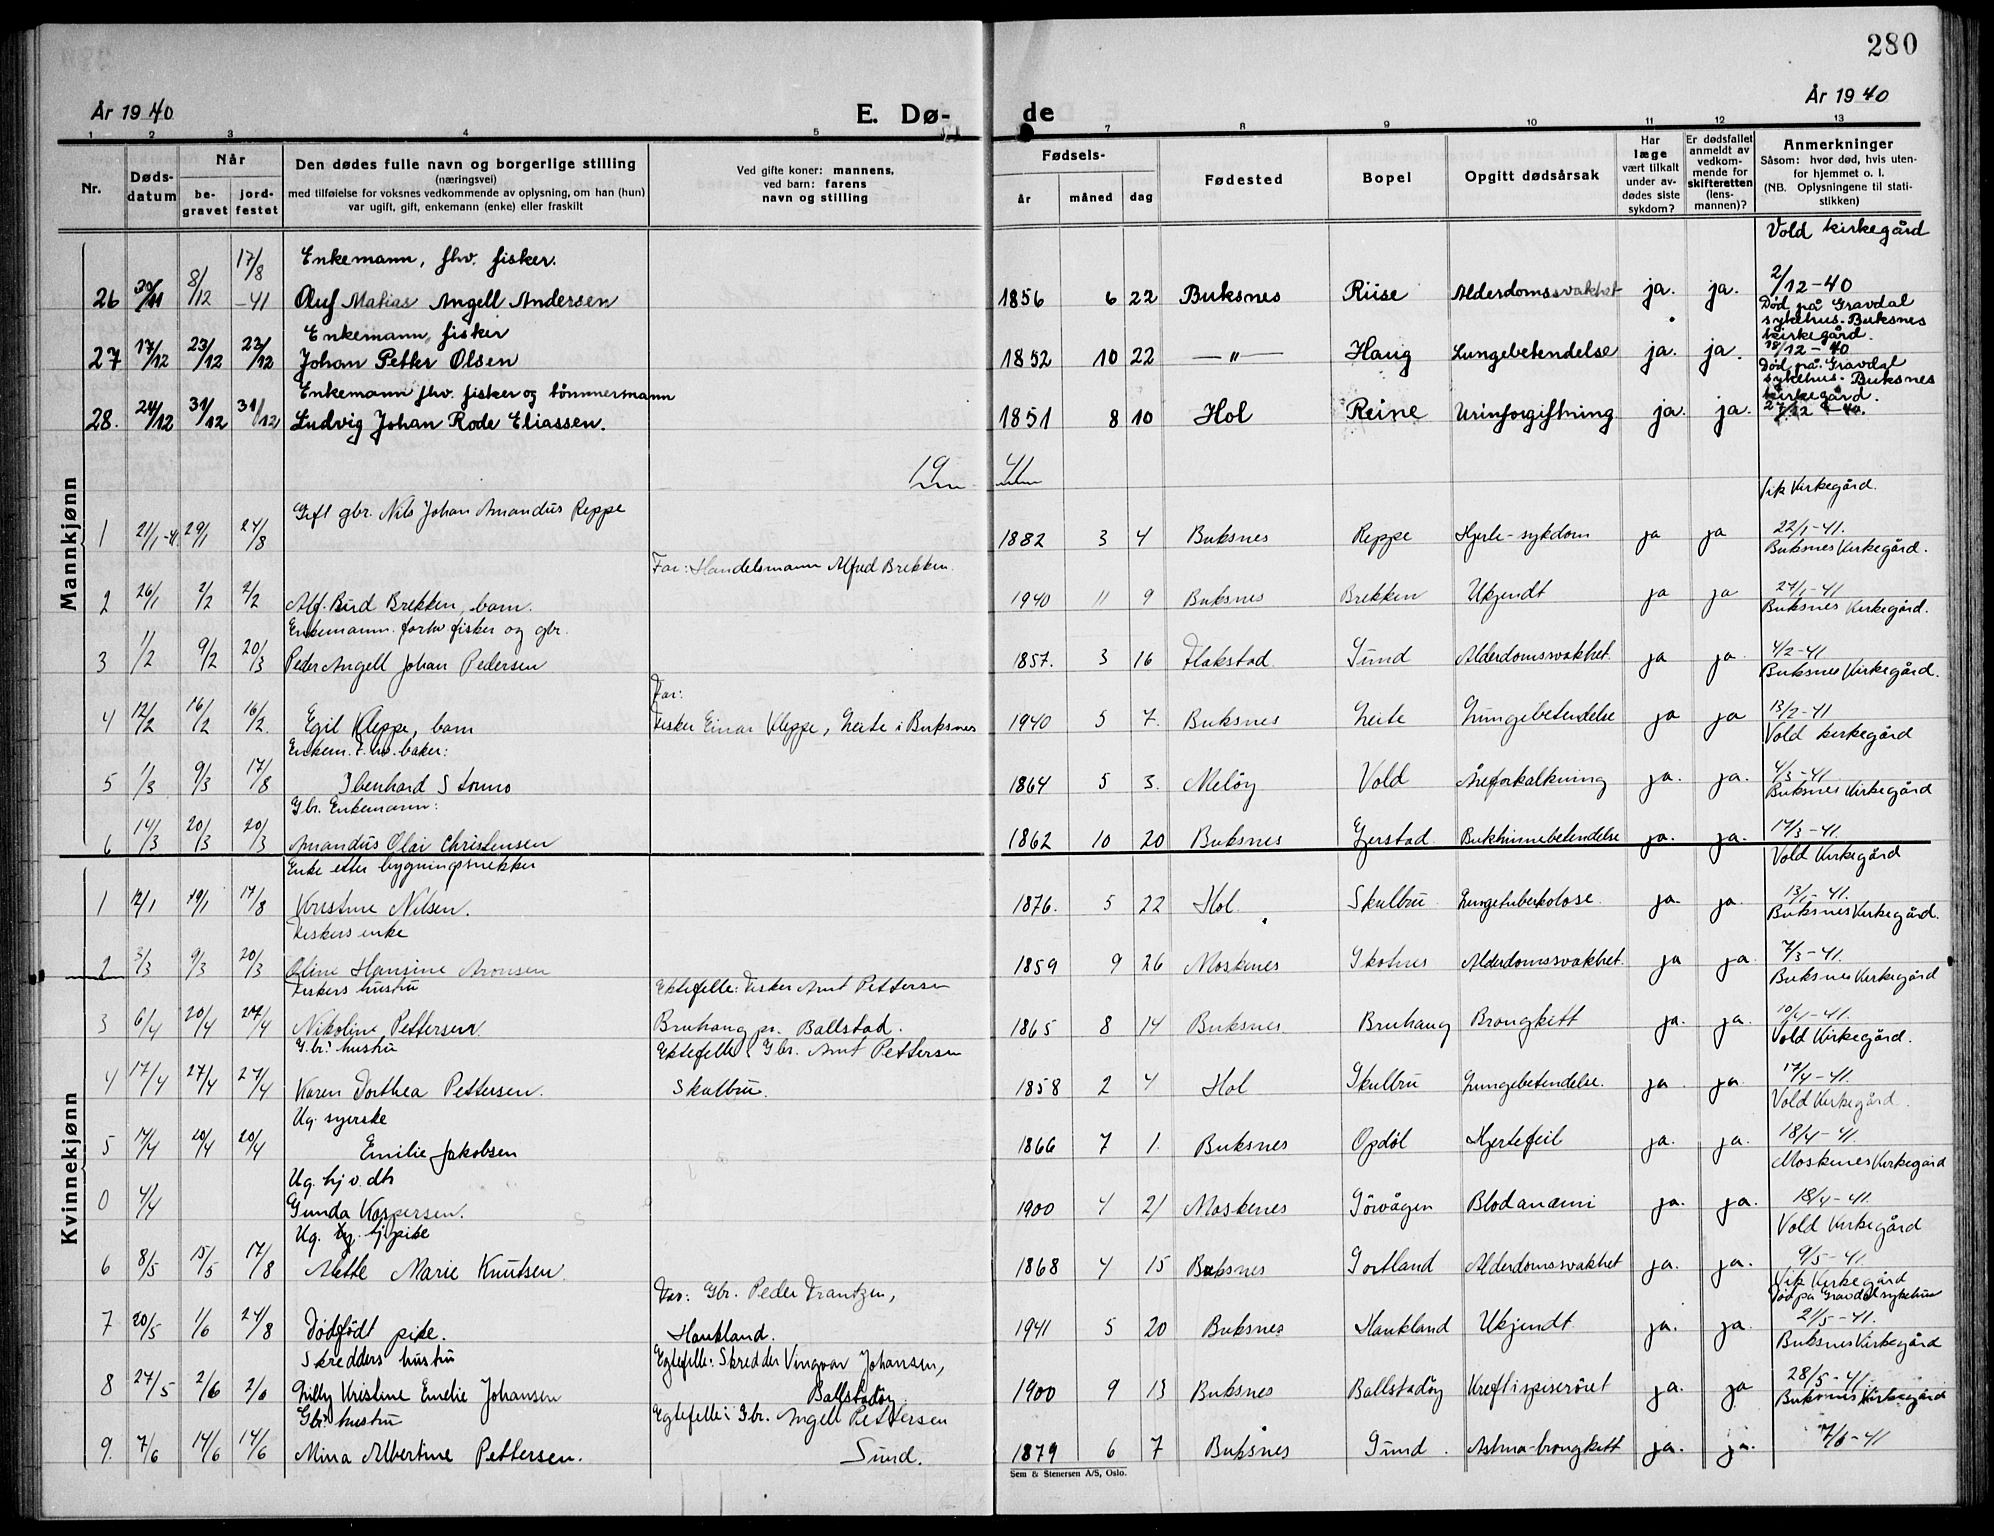 280
År 1940
E. Dø-
de
År 1940
1 2 3 4 5 7 8 9 10 11 12 13
Nr.
Døds-
datum
Når
be-
gravet
jord-
festet
Den dødes fulle navn og borgerlige stilling
(næringsvei)
med tilføielse for voksnes vedkommende av oplysning, om han (hun)
var ugift, gift, enkemann (enke) eller fraskilt
Ved gifte koner: mannens,
ved barn: farens
navn og stilling
Fødsels-
år måned dag
Fødested
Bopel
Opgitt dødsårsak
Har
læge
vært tilkalt
under av-
dødes siste
sykdom?
Er dødsfallet
anmeldt av
vedkom-
mende for
skifteretten
(lens-
mannen)?
Anmerkninger
Såsom: hvor død, hvis uten-
for hjemmet o. l.
(NB. Oplysningene til stati-
stikken)
Mannkjønn
Vold kirkegård
17/8 Enkemann, fhv. fisker.
26 30/11 8/12 -41 Oluf Matias Angell Andersen 1856 6 22 Buksnes Riise Alderdomssvakhet ja. ja. 2/12-40
Død på Gravdal
sykehus. Buksnes
kirkegård.
Enkemann, fisker
27 17/12 23/12 23/12 Johan Petter Olsen 1852 10 22 —"— Haug Lungebetendelse ja. ja. 18/12-40
Død på Gravdal
sykehus. Buksnes
kirkegård.
Enkemann fhv. fisker og tømmermann
28. 24/12 31/12 31/12 Ludvig Johan Rode Eliassen. 1851 8 10 Hol Reine Urinforgiftning ja. ja. 27/12-40.
19 41
Vik Kirkegård.
Gift gbr. Nils Johan Amandus Reppe
1 21/1-41. 29/1 24/8 1882 3 4 Buksnes Reppe Hjerte-sykdom ja ja 22/1-41.
Buksnes Kirkegård.
Far: Handelsmann Alfred Brekken.
2 26/1 2/2 2/2 Alf. Bud Brekken, barn. 1940 11 9 Buksnes Brekken Ukjendt ja ja 27/1-41
Buksnes Kirkegård.
Enkemann. forhv fisker og gbr.
3 1/2 9/2 20/3 Peder Angell Johan Pedersen 1857. 3 16 Flakstad Sund Alderdomssvakhet ja ja 4/2-41
Buksnes Kirkegård.
Far:
4 12/2 16/2 16/2. Egil Kleppe, barn Fisker Einar Kleppe, Leite i Buksnes 1940 5 7. Buksnes Leite Lungebetendelse ja ja 13/2-41
Vold kirkegård
Enkem. F. hv. baker:
5 1/3 9/3 17/8 Ibenhard Stormo 1864 5 3. Meløy Vold Åreforkalkning ja. ja. 4/3-41
Buksnes Kirkegård
Gbr. Enkemann:
6 14/3 20/3 20/3 Amandus Olai Christensen 1862 10 20 Buksnes Gjerstad Bukhinnebetendelse ja. ja. 17/3-41.
Kvinnekjønn
Vold Kirkegård
Enke etter bygningssnekker
1 12/1 19/1 17/8 Kristine Nilsen. 1876. 5 22 Hol. Skulbru Lungetuberkolose. ja. ja. 13/1-41.
Buksnes Kirkegård.
Fiskers enke
2 3/3 9/3 20/3 Oline Hansine Aronsen 1859 9 26 Moskenes Skotnes Alderdomssvakhet. ja ja. 7/3-41.
Buksnes Kirkegård
Fiskers hustru Ektefelle: Fisker Arnt Pettersen
3 6/4 20/4 27/4 Nikoline Pettersen Bruhaug pr. Ballstad. 1865 8 14 Buksnes Bruhaug Brongkitt ja. ja. 10/4-41.
Vold Kirkegård.
G.br.s hustru Ektefelle: Gbr. Arnt Pettersen
4 17/4 27/4 27/4 Karen Dorthea Pettersen. Skulbru. 1858 2 4 Hol Skulbru Lungebetendelse. ja. ja. 17/4-41.
Vold Kirkegård.
Ug. syerske
5 14/4 20/4 20/4 Emilie Jakobsen 1866 7 1. Buksnes Opdøl Hjertefeil ja. ja. 18/4-41.
Moskenes Kirkegård
Ug. hj v. dtr
0 4/4 Gunda Kaspersen. 1900 4 21 Moskenes Sørvågen Blodanæmi ja. ja. 18/4-41.
Vold Kirkegård
Ug. hj. pike
6 8/5 15/5 17/8 Mette Marie Knutsen. 1868 4 15 Buksnes Sortland Alderdomssvakhet ja. ja. 9/5-41.
Vik Kirkegård
Død på Gravdal sykehus
Far: Gbr. Peder Frantzen,
7 20/5 1/6 24/8 Dødfødt pike. Haukland. 1941 5 20 Buksnes Haukland Ukjendt ja. ja. 21/5-41.
Buksnes Kirkegård
Skredders hustru Egtefelle: Skredder Vingvar Johansen,
8 27/5 2/6 2/6 Lilly Kristine Emelie Johansen Ballstadøy 1900 9 13 Buksnes Ballstadøy Kreft i spiserøret ja. ja 28/5-41.
Buksnes Kirkegård
Gbr.s hustru Egtefelle: Gbr. Angell Pettersen
9. 7/6 14/6 14/6 Mina Albertine Pettersen. Sund. 1879 6 7 Buksnes Sund. Astma-brongkitt ja. ja. 7/6-41
Sem & Stenersen A/S, Oslo.